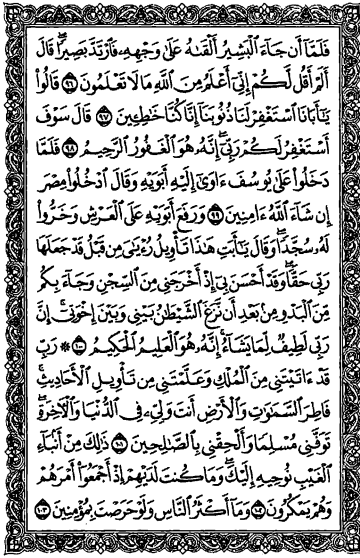 فَلَمَّآ أَن جَآءَ ٱلْبَشِيرُ أَلْقَىٰهُ عَلَىٰ وَجْهِهِۦ فَٱرْتَدَّ بَصِيرًا ۖ قَالَ
أَلَمْ أَقُل لَّكُمْ إِنِّىٓ أَعْلَمُ مِنَ ٱللَّهِ مَا لَا تَعْلَمُونَ ﴿٩٦﴾ قَالُوا۟
يَٰٓأَبَانَا ٱسْتَغْفِرْ لَنَا ذُنُوبَنَآ إِنَّا كُنَّا خَٰطِـِٔينَ ﴿٩٧﴾ قَالَ سَوْفَ
أَسْتَغْفِرُ لَكُمْ رَبِّىٓ ۖ إِنَّهُۥ هُوَ ٱلْغَفُورُ ٱلرَّحِيمُ ﴿٩٨﴾ فَلَمَّا
دَخَلُوا۟ عَلَىٰ يُوسُفَ ءَاوَىٰٓ إِلَيْهِ أَبَوَيْهِ وَقَالَ ٱدْخُلُوا۟ مِصْرَ
إِن شَآءَ ٱللَّهُ ءَامِنِينَ ﴿٩٩﴾ وَرَفَعَ أَبَوَيْهِ عَلَى ٱلْعَرْشِ وَخَرُّوا۟
لَهُۥ سُجَّدًا ۖ وَقَالَ يَٰٓأَبَتِ هَٰذَا تَأْوِيلُ رُءْيَٰىَ مِن قَبْلُ قَدْ جَعَلَهَا
رَبِّى حَقًّا ۖ وَقَدْ أَحْسَنَ بِىٓ إِذْ أَخْرَجَنِى مِنَ ٱلسِّجْنِ وَجَآءَ بِكُم
مِّنَ ٱلْبَدْوِ مِنۢ بَعْدِ أَن نَّزَغَ ٱلشَّيْطَٰنُ بَيْنِى وَبَيْنَ إِخْوَتِىٓ ۚ إِنَّ
رَبِّى لَطِيفٌ لِّمَا يَشَآءُ ۚ إِنَّهُۥ هُوَ ٱلْعَلِيمُ ٱلْحَكِيمُ ﴿١٠٠﴾ ۞ رَبِّ
قَدْ ءَاتَيْتَنِى مِنَ ٱلْمُلْكِ وَعَلَّمْتَنِى مِن تَأْوِيلِ ٱلْأَحَادِيثِ ۚ
فَاطِرَ ٱلسَّمَٰوَٰتِ وَٱلْأَرْضِ أَنتَ وَلِىِّۦ فِى ٱلدُّنْيَا وَٱلْءَاخِرَةِ ۖ
تَوَفَّنِى مُسْلِمًا وَأَلْحِقْنِى بِٱلصَّٰلِحِينَ ﴿١٠١﴾ ذَٰلِكَ مِنْ أَنۢبَآءِ
ٱلْغَيْبِ نُوحِيهِ إِلَيْكَ ۖ وَمَا كُنتَ لَدَيْهِمْ إِذْ أَجْمَعُوٓا۟ أَمْرَهُمْ
وَهُمْ يَمْكُرُونَ ﴿١٠٢﴾ وَمَآ أَكْثَرُ ٱلنَّاسِ وَلَوْ حَرَصْتَ بِمُؤْمِنِينَ ﴿١٠٣﴾